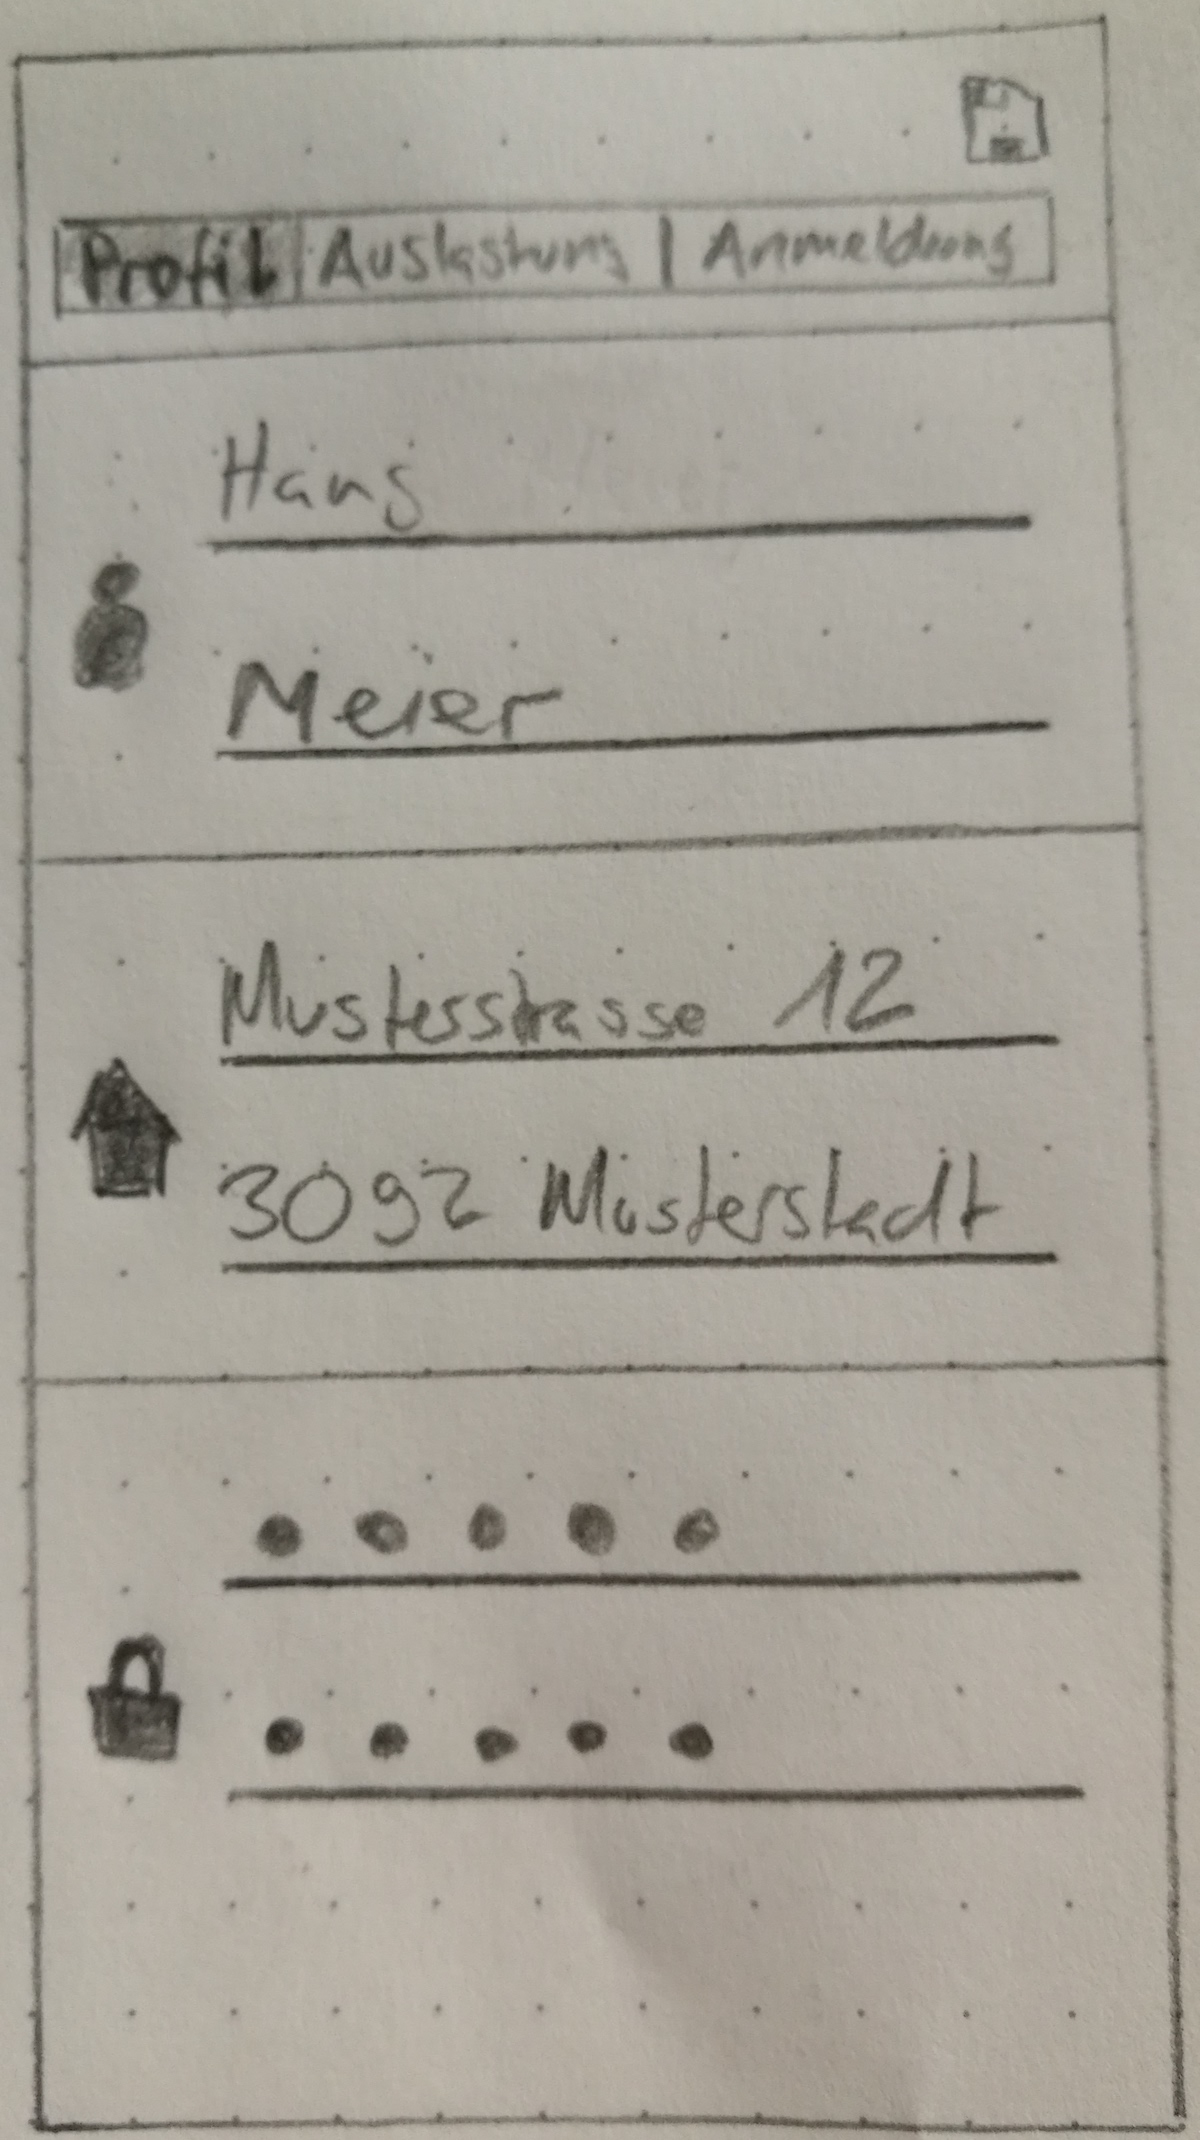 Profil Auslastung Anmeldung
Hans
Meier
Musterstrasse 12
3092 Musterstadt